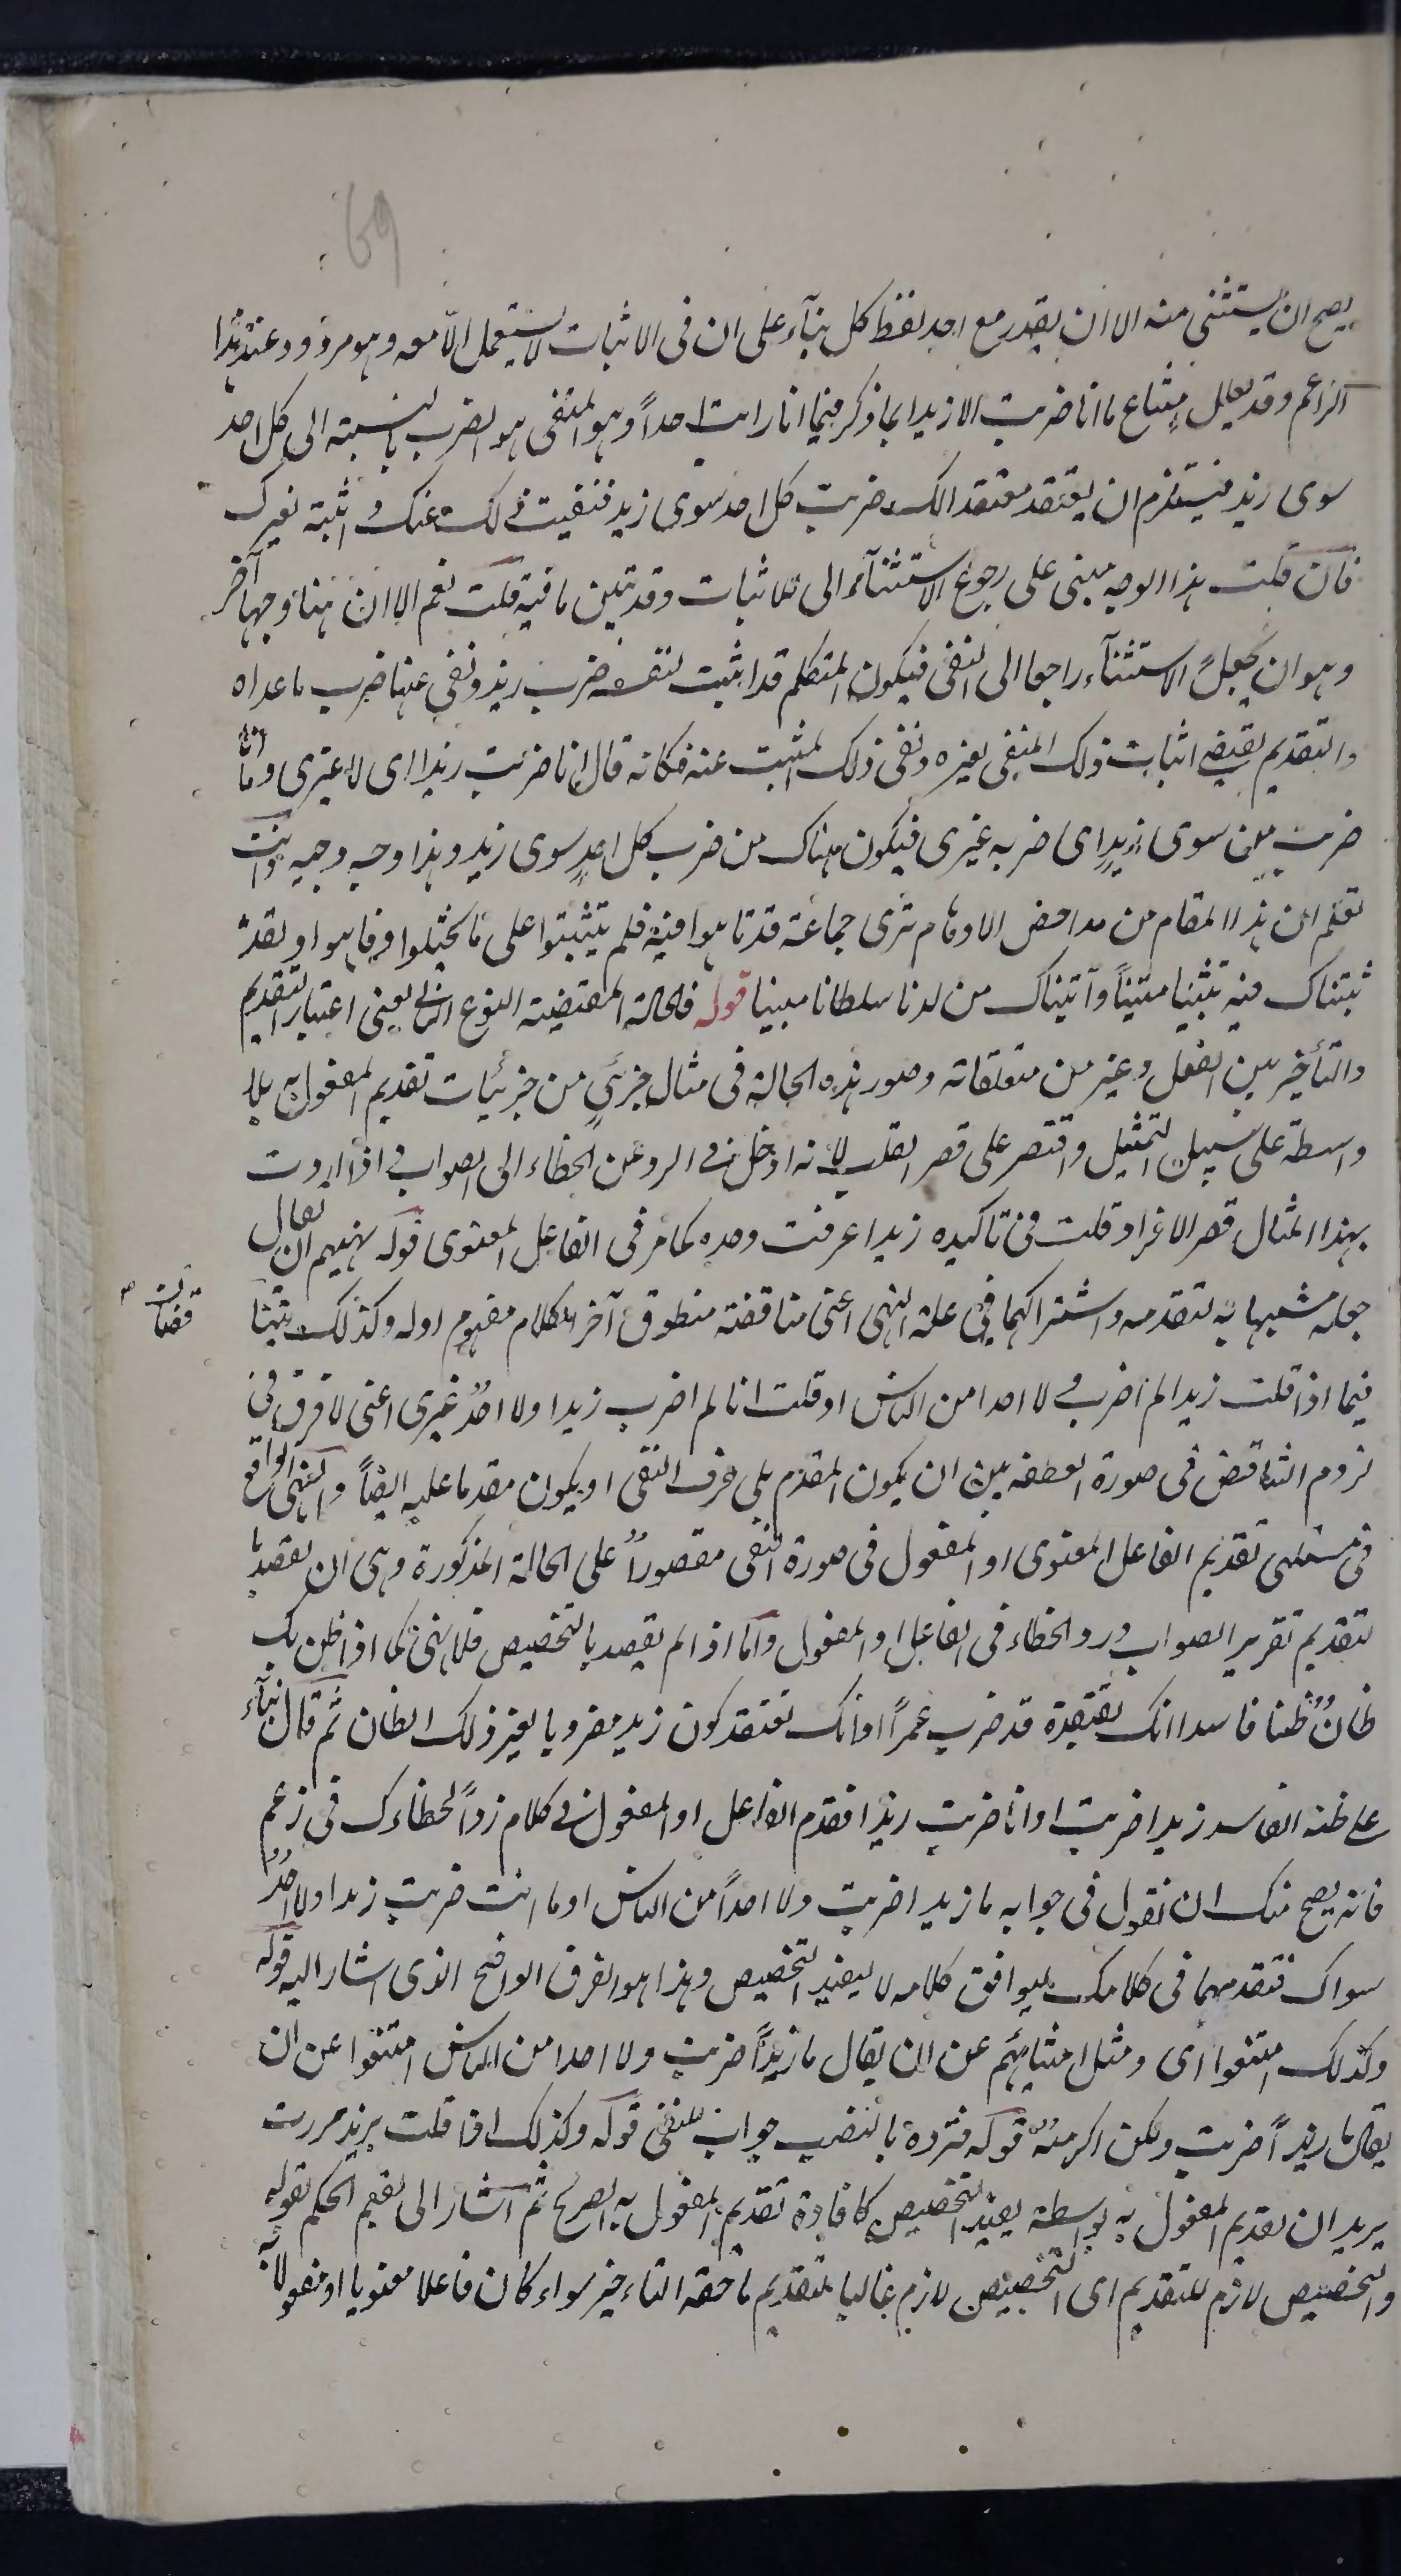 69
يصح ان يستثنى منه الا ان يقدر مع احد لفظ كل بنآء على ان فى الاثبات لا يستعمل الّا معه وهو مردود عند هذا
الزاعم وقد يعلل امتناع ما انا ضربت الا زيدا بما ذكر فيما انا رايت احداً وهو المنفى هو الضرب بالنسبة الى كل احد
سوى زيد فيستلزم ان يعتقد معتقد انك ضربت كل احد سوى زيد فنفيت ذلك عنك واثبته لغيرك
فان قلت هذا الوجه مبنى على رجوع الاستثنآء الى الاثبات وقد تبين ما فيه قلت نعم الا ان هنا وجها آخر
وهو ان يجعل الاستثنآء راجعا الى النفى فيكون المتكلم قد اثبت لنفسه ضرب زيد ونفى عنها ضرب ما عداه
والتقديم يقتضى اثبات ذلك المنفى لغيره ونفى ذلك المثبت عنه فكانه قال انا ضربت زيدا اى لا غيرى وما انا
ضربت من سوى زيدٍ اى ضربه غيرى فيكون هناك من ضرب كل احدٍ سوى زيد وهذا وجه وجيه وانت
تعلم ان هذا المقام من مداحض الاوهام ترى جماعة قد تاهوا فيه فلم يتثبتوا على ما تخيلوا وفاهوا ولقد
ثبتناك فيه تثبيتا متيناً وآتيناك من لدنا سلطانا مبينا قوله فالحالة المقتضية للنوع الثانى يعنى اعتبار التقديم
والتأخير بين الفعل وغيره من متعلقاته وصور هذه الحالة فى مثال جزئى من جزئيات تقديم المفعول به بلا
واسطة على سبيل التمثيل واقتصر على قصر القلب لانه ادخل فى الرد عن الخطاء الى الصواب فاذا اردت
بهذا المثال قصر الافراد قلت فى تاكيده زيدا عرفت وحده كما مر فى الفاعل المعنوى قوله نهيهم ان يقال
جعله مشبها به لتقدمه واشتراكهما فى علة النهى اعنى مناقضة منطوق آخر الكلام مفهوم اوله وكذلك يتناقضان
فيما اذا قلت زيدا لم اضرب ولا احدا من الناس او قلت انا لم اضرب زيدا ولا احدٌ غيرى اعنى لا فرق فى
لزوم التناقض فى صورة العطف بين ان يكون المقدم يلى حرف النفى او يكون مقدما عليه ايضاً والنهى الواقع
فى مسئلتى تقديم الفاعل المعنوى او المفعول فى صورة النفى مقصوراً على الحالة المذكورة وهى ان يقصد با
لتقديم تقرير الصواب ورد الخطاء فى الفاعل او المفعول واما اذا لم يقصد بالتخصيص فلا نهى كما اذا ظن بك
ظانٌ ظنا فاسدا انك تعتقد قد ضرب عمراً او انك تعتقد كون زيد مضروبا لغير ذلك الظان ثم قال بنآء
على ظنه الفاسد زيدا ضربت او انا ضربت زيدا فقدم الفاعل او المفعول فى كلامه رداً لخطائك فى زعمه
فانه يصح منك ان تقول فى جوابه ما زيدا ضربت ولا احداً من الناس او ما انت ضربت زيدا ولا احدٌ
سواك فتقدمهما فى كلامك ليوافق كلامه لا ليفيد التخصيص وهذا هو الفرق الواضح الذى اشار اليه قوله
وكذلك امتنعوا اى ومثل امتناعهم عن ان يقال ما زيداً ضربت ولا احدا من الناس امتنعوا عن ان
يقال ما زيداً ضربت ولكن اكرمته قوله فترده بالنصب جواب للنفى قوله وكذلك اذا قلت بزيد مررت
يريد ان تقديم المفعول به بواسطة يفيد التخصيص كافادة تقديم المفعول به الصريح ثم اشار الى تعميم الحكم بقوله
والتخصيص لازم للتقديم اى التخصيص لازم غالبا لتقديم ما حقه التاخير سواء كان فاعلا معنويا او مفعولا به